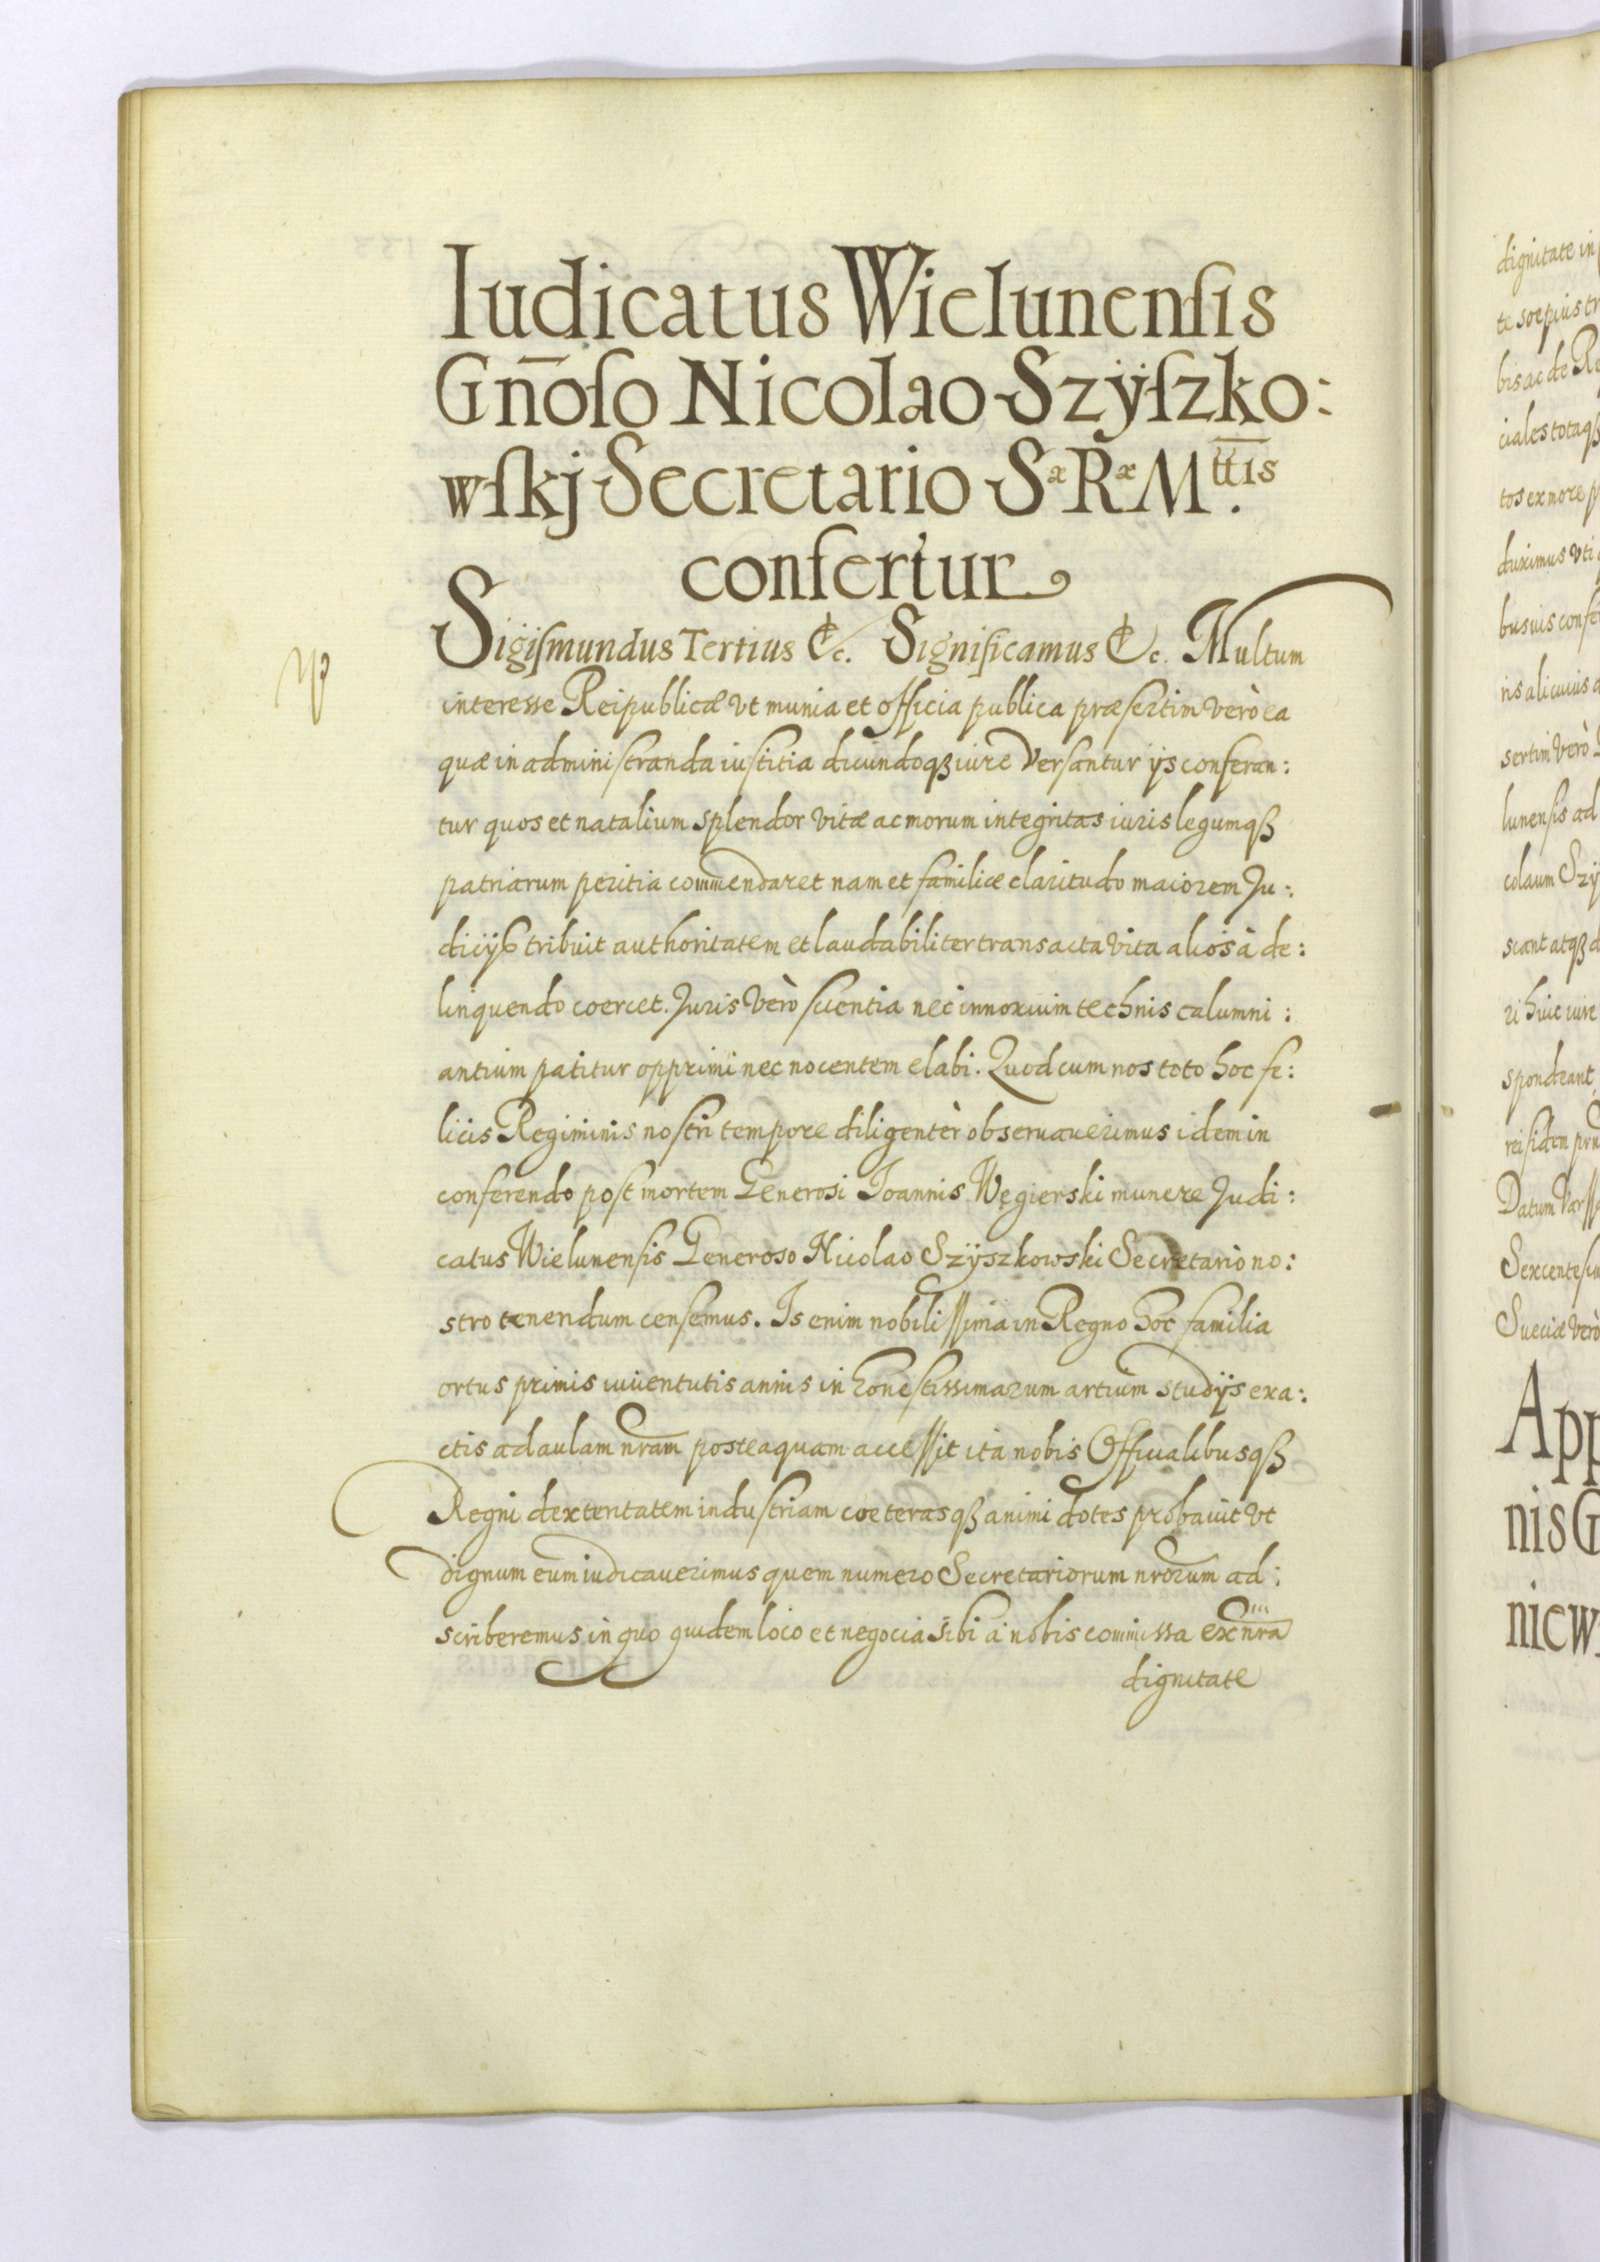 Iudicatus Wielunensis
Gn̄oso Nicolao Szÿszko:
wskj Secretario Sæ Ræ M ttis.
confertur
Sigismundus Tertius &c. Significamus &c. Multum
interesse Reipublicæ vt munia et officia publica præsertim verò ea
quæ in administranda iustitia dicundoqꝫ iure versantur ijs conferan:
tur quos et natalium splendor vitæ ac morum integritas iuris legumqꝫ
patriarum peritia commendaret nam et familiæ claritudo maiorem Ju:
dicijs tribuit authoritatem et laudabiliter transacta vita alios à de:
linquendo coercet. Juris verò scientia nec innoxium technis calumni:
antium patitur opprimi nec nocentem elabi. Quod cum nos toto hoc fe:
licis Regiminis nostri tempore diligentèr obseruauerimus idem in
conferendo post mortem Generosi Joannis Węgierski munere Judi:
catus Wielunensis Generoso Nicolao Szÿszkowski Secretario no:
stro tenendum censemus. Is enim nobilissima in Regno hoc familia
ortus primis iuuentutis annis in honestissimarum artium studijs exa:
ctis ad aulam nr̄am posteaquam accessit ita nobis Officialibusqꝫ
Regni dexteritatem industriam cœterasqꝫ animi dotes probauit vt
dignum eum iudicauerimus quem numero Secretariorum nr̄orum ad:
scriberemus in quo quidem loco et negocia sibi à nobis commissa ex nr̄a
dignitate
dignitate in
te sœpius tr
bis ac de Re
ciales totaqꝫ
tos ex more p
duximus vti
busuis confe
ris alicuius a
sertim verò
lunensis ad
colaum Szÿ
scant atqꝫ d
ri huic iure
spondeant
rei fidem prn
Datum Varss
Sexcentesi
Sueciæ verò
App
nis G
niew